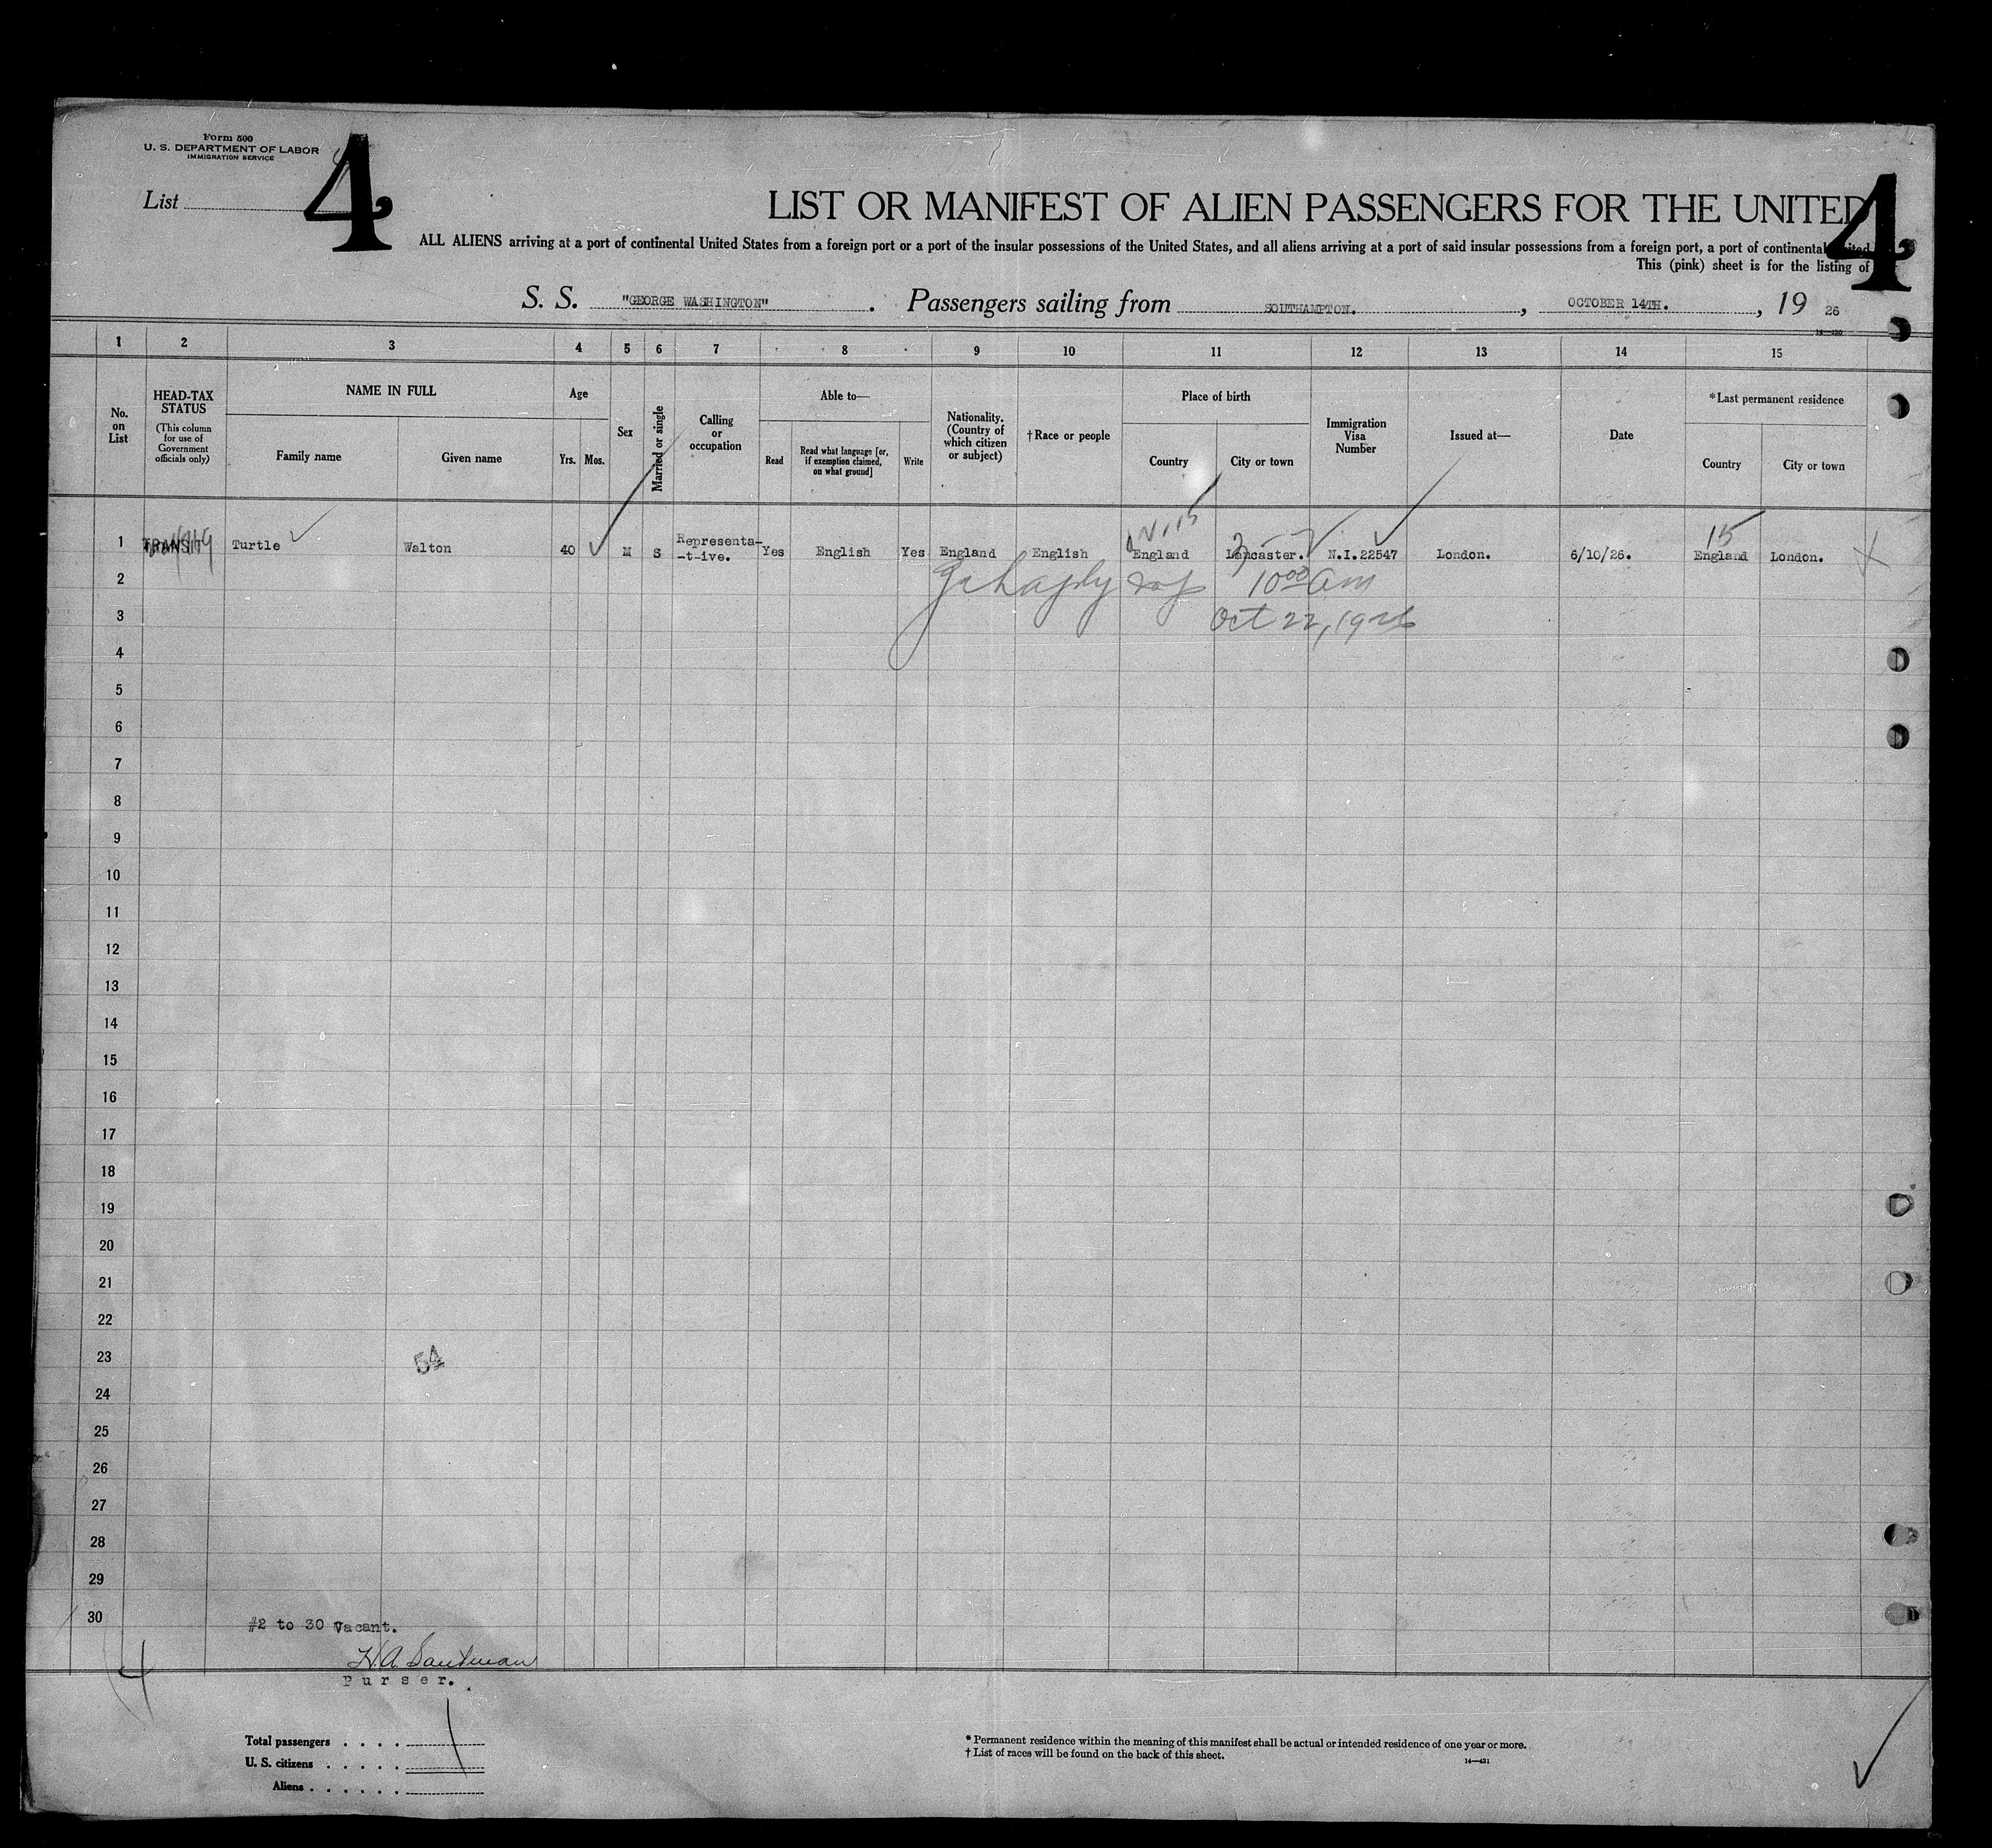 Form 500
U. S. DEPARTMENT OF LABOR
IMMIGRATION SERVICE
List 4
4
LIST OR MANIFEST OF ALIEN PASSENGERS FOR THE UNITED
ALL ALIENS arriving at a port of continental United States from a foreign port or a port of the insular possessions of the United States, and all aliens arriving at a port of said insular possessions from a foreign port, a port of continental
This (pink) sheet is for the listing of
S. S. "GEORGE WASHINGTON". Passengers sailing from SOUTHAMPTON., OCTOBER 14TH., 19 26
1 2 3 4 5 6 7 8 9 10 11 12 13 14 15
No. on List
HEAD-TAX STATUS
(This column for use of Government officials only)
NAME IN FULL
Family name
Given name
Age
Yrs. Mos.
Sex
Married or single
Calling or occupation
Able to—
Read
Read what language [or, if exemption claimed, on what ground]
Write
Nationality. (Country of which citizen or subject)
†Race or people
Place of birth
Country
City or town
Immigration Visa Number
Issued at—
Date
*Last permanent residence
Country
City or town
15
1 TRANSIT Turtle Walton 40 M S Representa-
-t-ive. Yes English Yes England English England Lancaster. N.I.22547 London. 6/10/26. England London.
2 10 00 am
3 Oct 22, 1926
4
5
6
7
8
9
10
11
12
13
14
15
16
17
18
19
20
21
22
23 54
24
25
26
27
28
29
30 #2 to 30 Vacant.
4 H.A. Santman
Purser.
Total passengers . . . . 1
U. S. citizens . . . . .
Aliens . . . . . .
* Permanent residence within the meaning of this manifest shall be actual or intended residence of one year or more.
† List of races will be found on the back of this sheet.
14—431